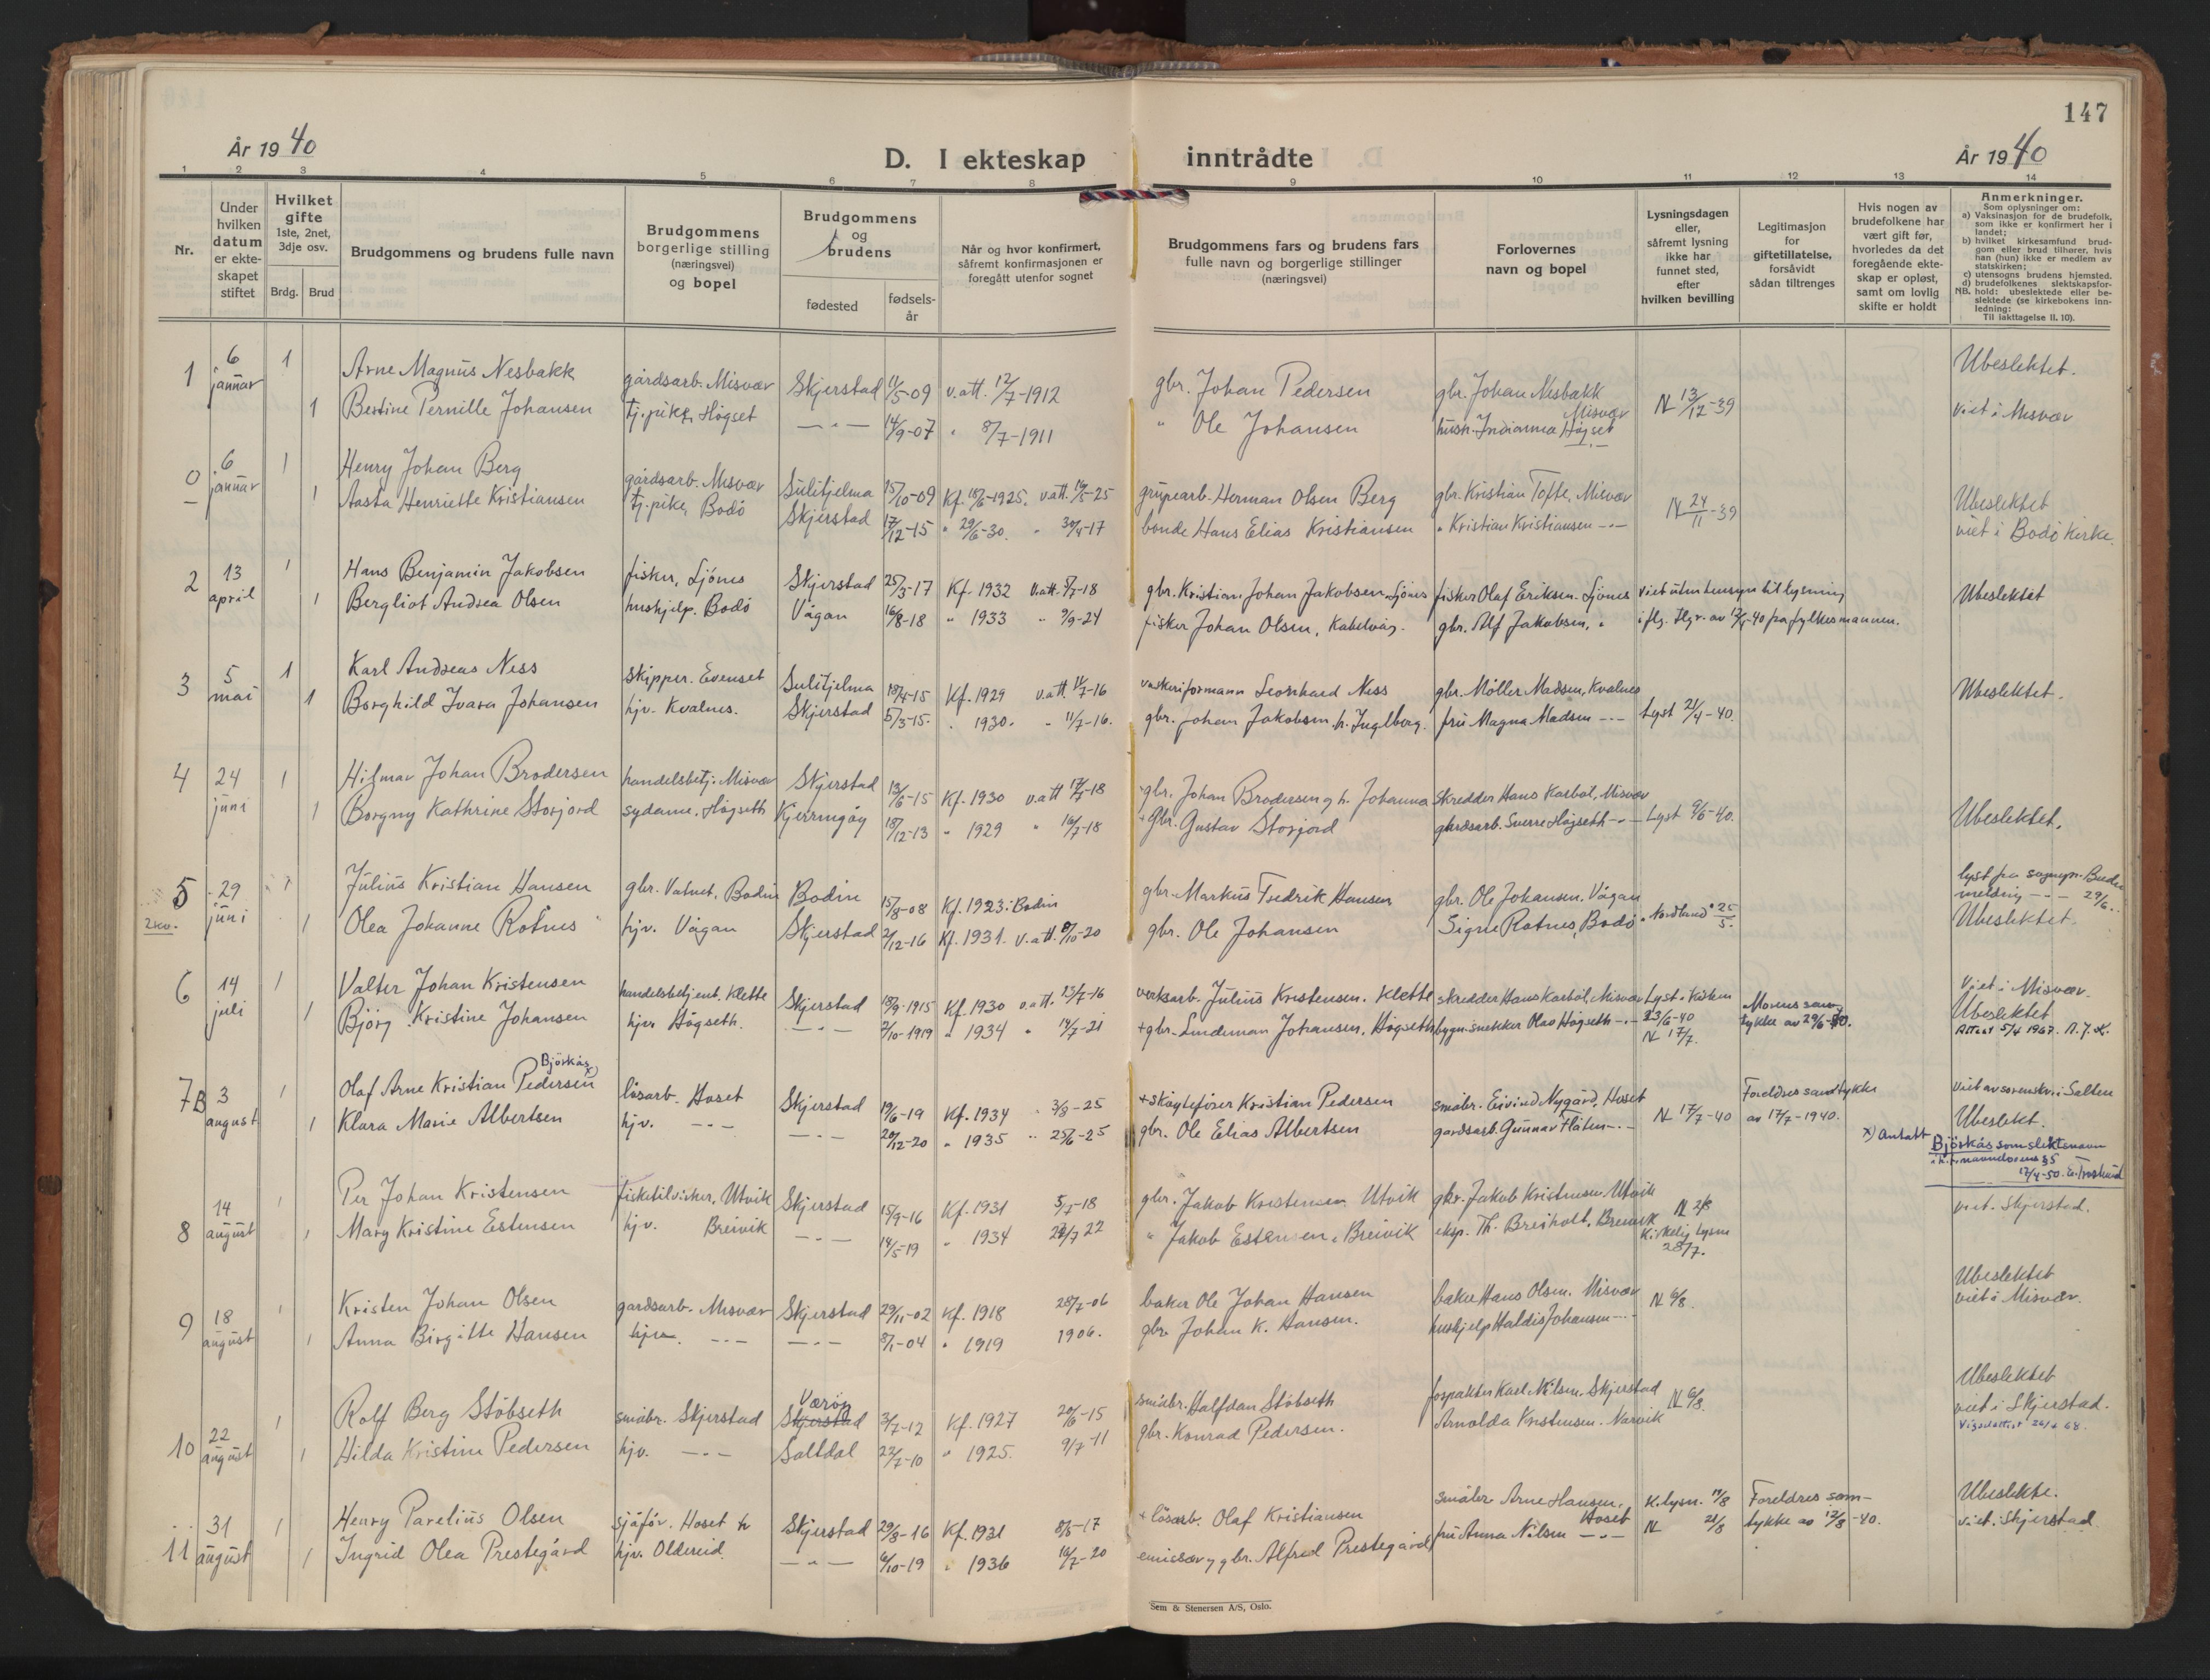 147
År 1940
D. I ekteskap inntrådte
År 1940
1 2 3 4 5 6 7 8 9 10 11 12 13 14
Nr.
Under hvilken datum er ekteskapet stiftet
Hvilket gifte 1ste, 2net, 3dje osv.
Brdg. Brud
Brudgommens og brudens fulle navn
Brudgommens borgerlige stilling (næringsvei) og bopel
Brudgommens og brudens
fødested
fødselsår
Når og hvor konfirmert, såfremt konfirmasjonen er foregått utenfor sognet
Brudgommens fars og brudens fars fulle navn og borgerlige stillinger (næringsvei)
Forlovernes navn og bopel
Lysningsdagen eller, såfremt lysning ikke har funnet sted, efter hvilken bevilling
Legitimasjon for giftetillatelse, forsåvidt sådan tiltrenges
Hvis nogen av brudefolkene har vært gift før, hvorledes da det foregående ekteskap er opløst, samt om lovlig skifte er holdt
Anmerkninger.
Som oplysninger om:
a) Vaksinasjon for de brudefolk, som ikke er konfirmert her i landet;
b) hvilket kirkesamfund brudgom eller brud tilhører, hvis han (hun) ikke er medlem av statskirken;
c) utensogns brudens hjemsted.
d) brudefolkenes slektskapsforhold: ubeslektede eller beslektede (se kirkebokens innledning:
NB.
Til iakttagelse II. 10).
1 6 januar 1 Arne Magnus Nesbakk gårdsarb. Misvær Skjerstad 11/5-09 v.att. 12/7-1912 gbr. Johan Pedersen gbr. Johan Nesbakk Misvær N 13/12-39 Ubeslektet.
1 Bertine Pernille Johansen tj.pike, Högset —"— 14/9-07 " 8/7-1911 " Ole Johansen hush. Indianna Højset —"— viet i Misvær
0 6 januar 1 Henry Johan Berg gårdsarb. Misvær Sulitjelma 15/10-09 Kf. 18/6-1925. v.att. 19/5-25 grupearb. Herman Olsen Berg gbr. Kristian Tofte, Misvær N 24/11-39 Ubeslektet
1 Aasta Henriette Kristiansen tj.pike, Bodö Skjerstad 17/12-15 " 29/6-30. " 30/4-17 bonde Hans Elias Kristiansen " Kristian Kristiansen —"— viet i Bodö Kirke.
2 13 april 1 Hans Benjamin Jakobsen fisker, Ljönes Skjerstad 25/3-17 Kf. 1932 v.att. 8/7-18 gbr. Kristian Johan Jakobsen, Ljönes fisker Olaf Eriksen. Ljönes viet uten hensyn til lysning Ubeslektet
1 Bergliot Andrea Olsen hushjelp. Bodö Vågan 16/8-18 " 1933 " 9/9-24 fisker Johan Olsen, Kabelvåg. gbr. Alf Jakobsen, " iflg. av 12/4-40 fra fylkesmannen.
3 5 mai 1 Karl Andreas Ness skipper. Evenset Sulitjelma 18/4-15 Kf. 1929 v.att. 14/7-16 vaskeriformann Leonhard Ness gbr. Møller Madsen, Kvalnes Ubeslektet.
1 Borghild Ivara Johansen hjv. Kvalnes. Skjerstad 5/3-15. " 1930. " 11/7-16. gbr. Johan Jakobsen h. Ingelborg. fru Magna Madsen —"— Lyst 21/4-40.
4 24 juni 1 Hilmar Johan Brodersen handelsbetj. Misvær Skjerstad 13/6-15 Kf. 1930 v.att 17/7-18 gbr. Johan Brodersen og h. Johanna Skredder Hans Karbøl, Misvær
1 Borgny Kathrine Storjord sydame. Högseth Kjerringöy 18/12-13 " 1929 " 16/7-18 + gbr. Gustav Storjord gårdsarb. Sverre Højseth —"— Lyst 9/6-40. Ubeslektet.
5 29 juni 1 Julius Kristian Hansen gbr. Vatnet. Bodin Bodin 15/8-08 Kf. 1923 i Bodin gbr. Markus Fredrik Hansen gbr. Ole Johansen. Vågan "Nordland" 25/5. lyst fra sognepr. Bodin melding —"— 29/6..
1 Olea Johanne Rotnes hjv. Vågan Skjerstad 2/12-16 Kf. 1931. v.att. 8/10-20 gbr. Ole Johansen Signe Rotnes, Bodö Ubeslektet.
6 14 juli 1 Valter Johan Kristensen handelsbetjent. Klette Skjerstad 18/9-1915 Kf. 1930 v.att. 23/7-16 verksarb. Julius Kristensen. Klette skredder Hans Karböl, Misvær Lyst i kirken 23/6-40 Morens samtykke av 29/6-40. Viet i Misvær.
1 Björg Kristine Johansen hjv. Högseth. —"— 7/10-1919 " 1934 " 14/7-21 + gbr. Lindeman Johansen, Högseth bygn.snekker Olav Högseth —"— N 17/7. Ubeslektet
Attest 5/4 1967. A.J.K.
7B 3 august 1 Olaf Arne Kristian Pedersen x) Björkås lösarb. Hoset Skjerstad 19/6-19 Kf. 1934 " 3/8-25 + skøyteförer Kristian Pedersen småbr. Eivind Nygård, Hoset N 17/7-40 Foreldres samtykke av 17/7-1940. viet av sorenskr. i Salten
1 Klara Marie Albertsen hjv. —"— —"— 20/12-20 " 1935 " 25/6-25 gbr. Ole Elias Albertsen gardsarb. Gunnar Flåten —"— Ubeslekt.
x) Antatt Björkås som slektsnavn i h.t. navnelovens § 5 17/4-50.
8 14 august 1 Per Johan Kristensen fisketilvirker, Utvik Skjerstad 15/9-16 Kf. 1931 5/7-18 gbr. Jakob Kristensen Utvik gbr. Jakob Kristensen. Utvik N 2/8 viet. Skjerstad.
1 Mary Kristine Estensen hjv. Breivik —"— 14/5-19 " 1934 22 " Jakob Estensen, Breivik eksp. Th. Breiholt, Breivik Kirkelig lysn 28/7.
9 18 august 1 Kristen Johan Olsen gardsarb. Misvær Skjerstad 29/11-02 Kf. 1918 28/7-06 baker Ole Johan Hansen baker Hans Olsen. Misvær N 6/8. Ubeslektet
1 Anna Birgitte Hansen hjv. —"— —"— 8/1-04 " 1919 1906. gbr. Johan K. Hansen. hushjelp Haldis Johansen —"— viet i Misvær.
10 22 august 1 Rolf Berg Stöbseth småbr. Skjerstad Værøy Skjerstad 3/7-12 Kf. 1927 20/6-15 småbr. Halfdan Stöbseth forpakter Karl Nilsen. Skjerstad N 6/8. Ubeslektet
1 Hilda Kristine Pedersen hjv. —"— Saltdal 22/7-10 " 1925. 9/7-11 gbr. Konrad Pedersen. Arnolda Kristensen. Narvik viet i Skjerstad.
11 31 august 1 Henry Parelius Olsen sjåför. Hoset Skjerstad 29/8-16 Kf. 1931 8/8-17 + lösarb. Olaf Kristiansen småbr Arne Hansen, Hoset K.lysn. 11/8 Foreldres samtykke av 12/8-40. Ubeslekte.
1 Ingrid Olea Prestegård hjv. Oldereid. —"— 6/10-19 " 1936 16/7-20 emissær og gbr. Alfred Prestegård fru Anna Nilsen —"— N 21/8 viet. Skjerstad
Sem & Stenersen A/S, Oslo.